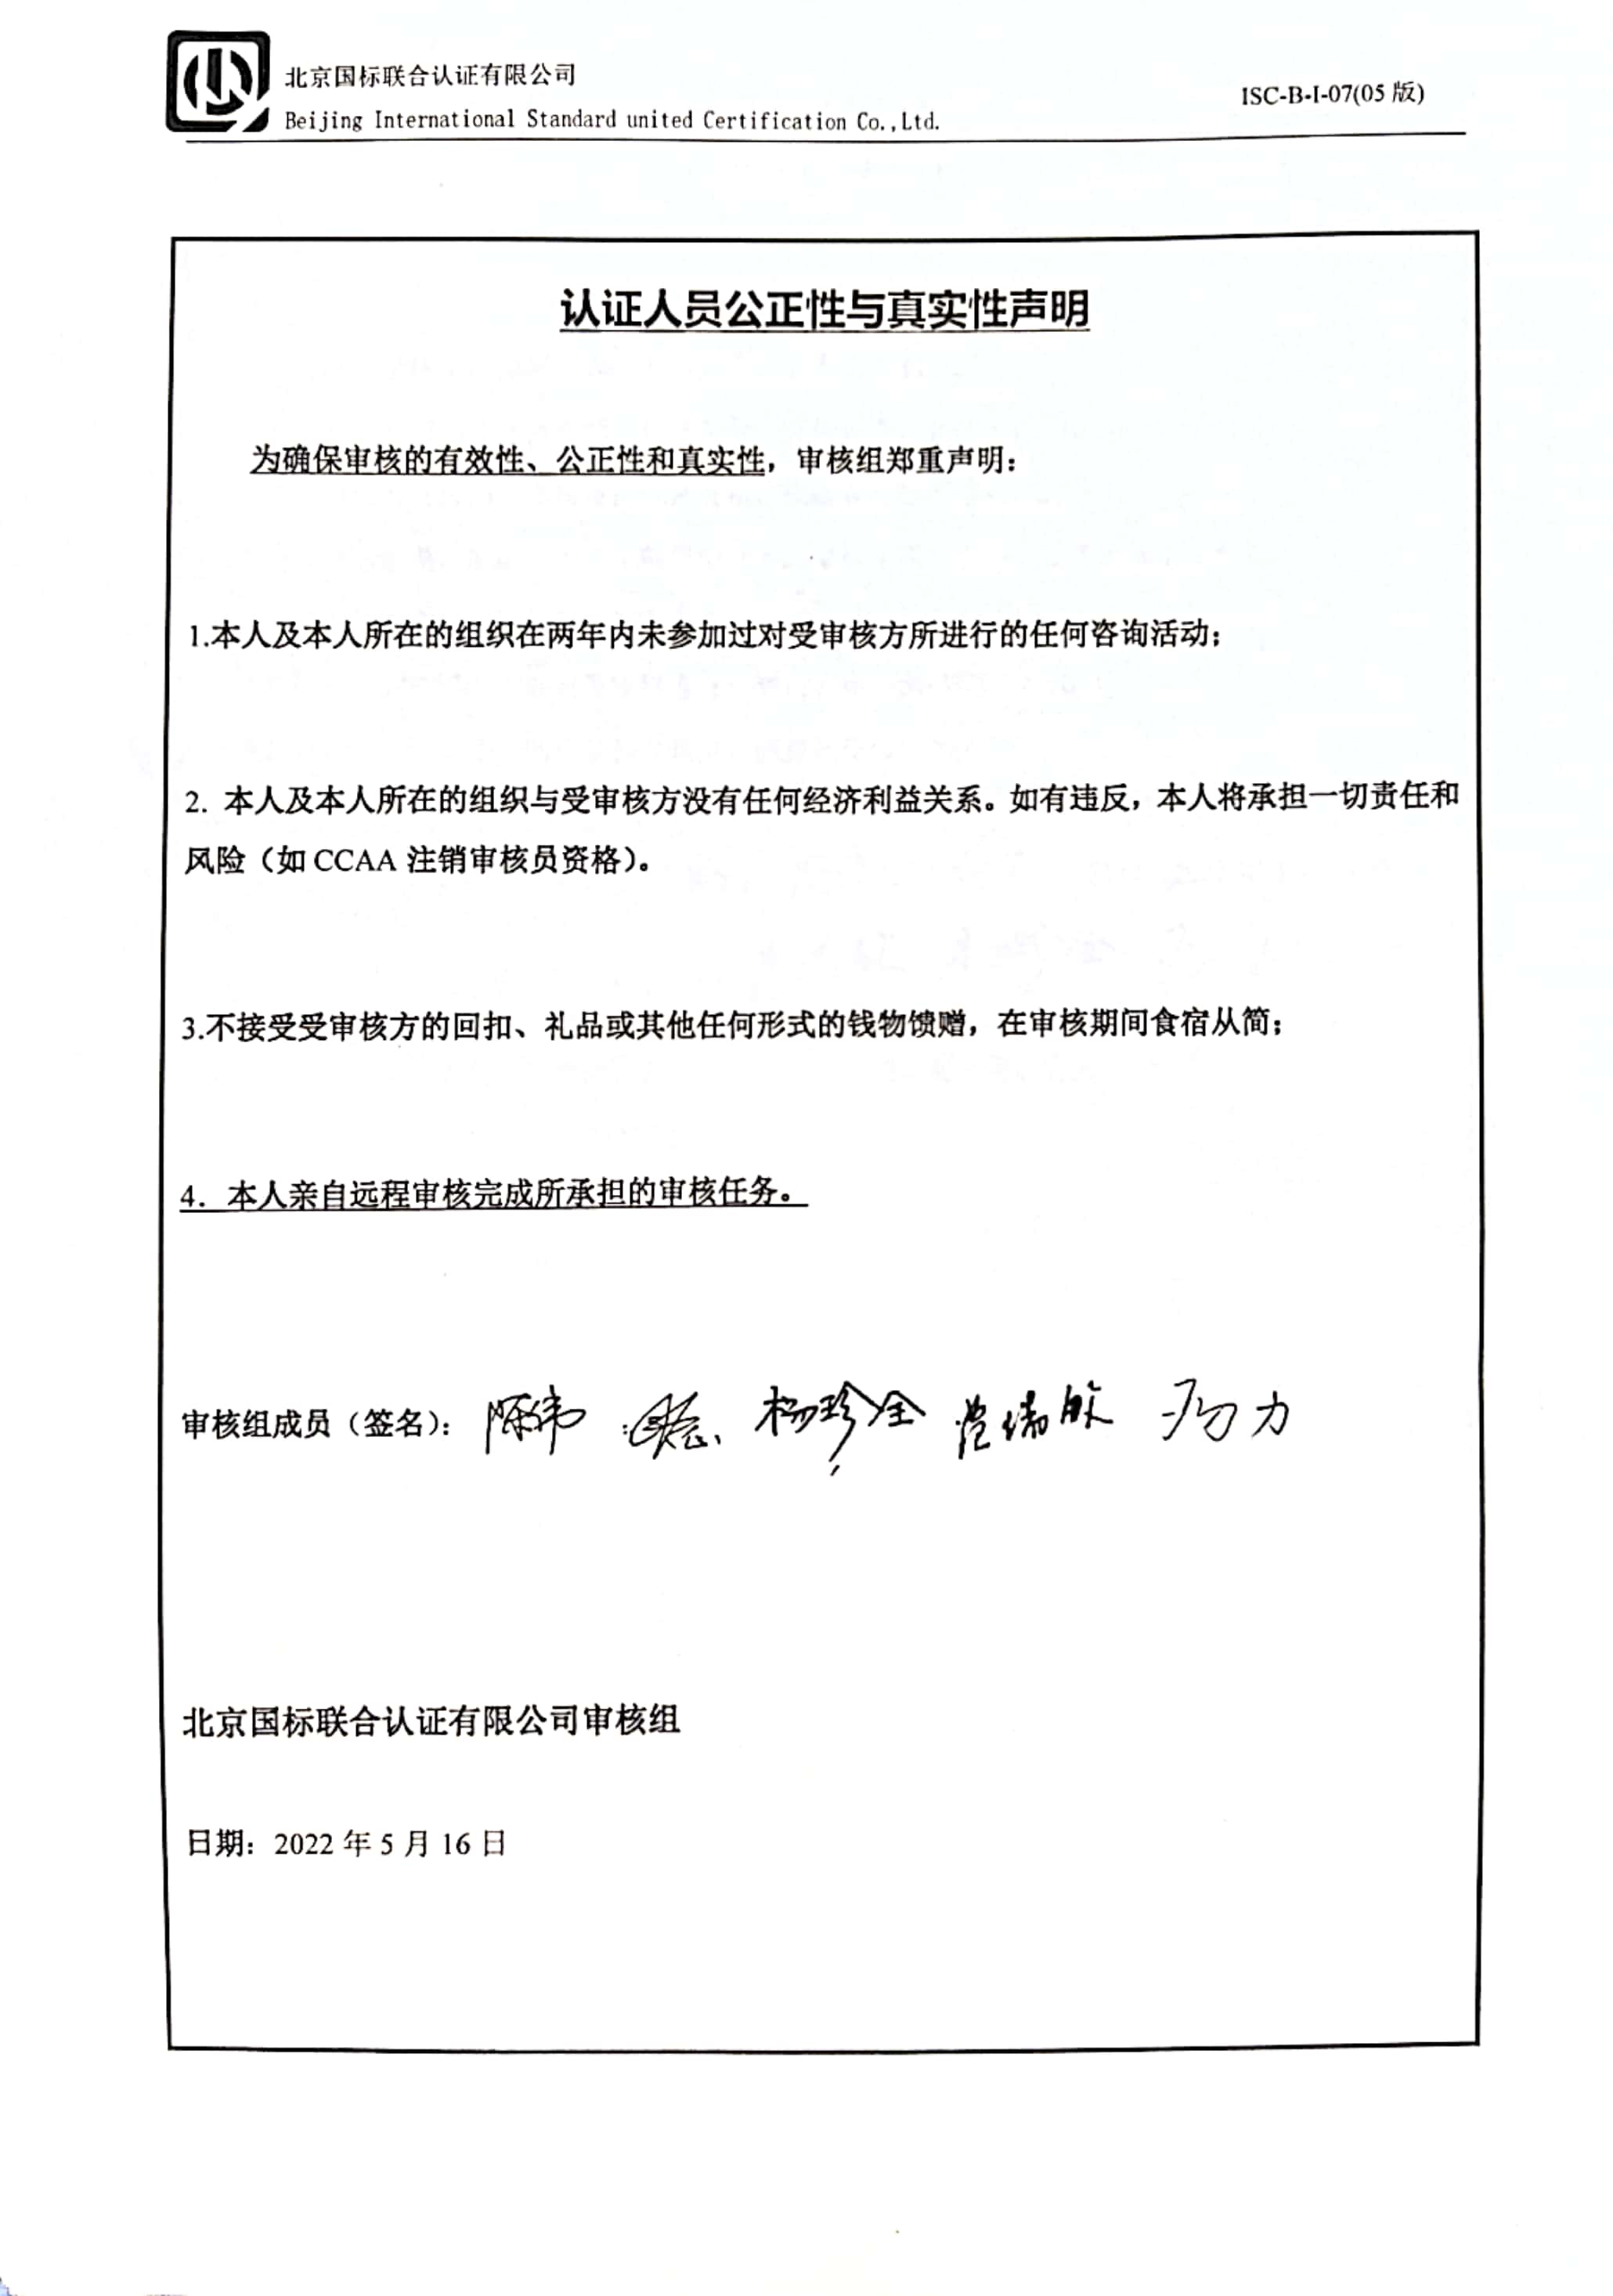 北京国标联合认证有限公司
Beijing International Standard united Certification Co.,Ltd.
ISC-B-I-07(05 版)
认证人员公正性与真实性声明
为确保审核的有效性、公正性和真实性，审核组郑重声明：
1.本人及本人所在的组织在两年内未参加过对受审核方所进行的任何咨询活动；
2. 本人及本人所在的组织与受审核方没有任何经济利益关系。如有违反，本人将承担一切责任和
风险（如 CCAA 注销审核员资格）。
3.不接受受审核方的回扣、礼品或其他任何形式的钱物馈赠，在审核期间食宿从简；
4. 本人亲自远程审核完成所承担的审核任务。
审核组成员（签名）： 陈伟 杨珍全
北京国标联合认证有限公司审核组
日期：2022 年 5 月 16 日